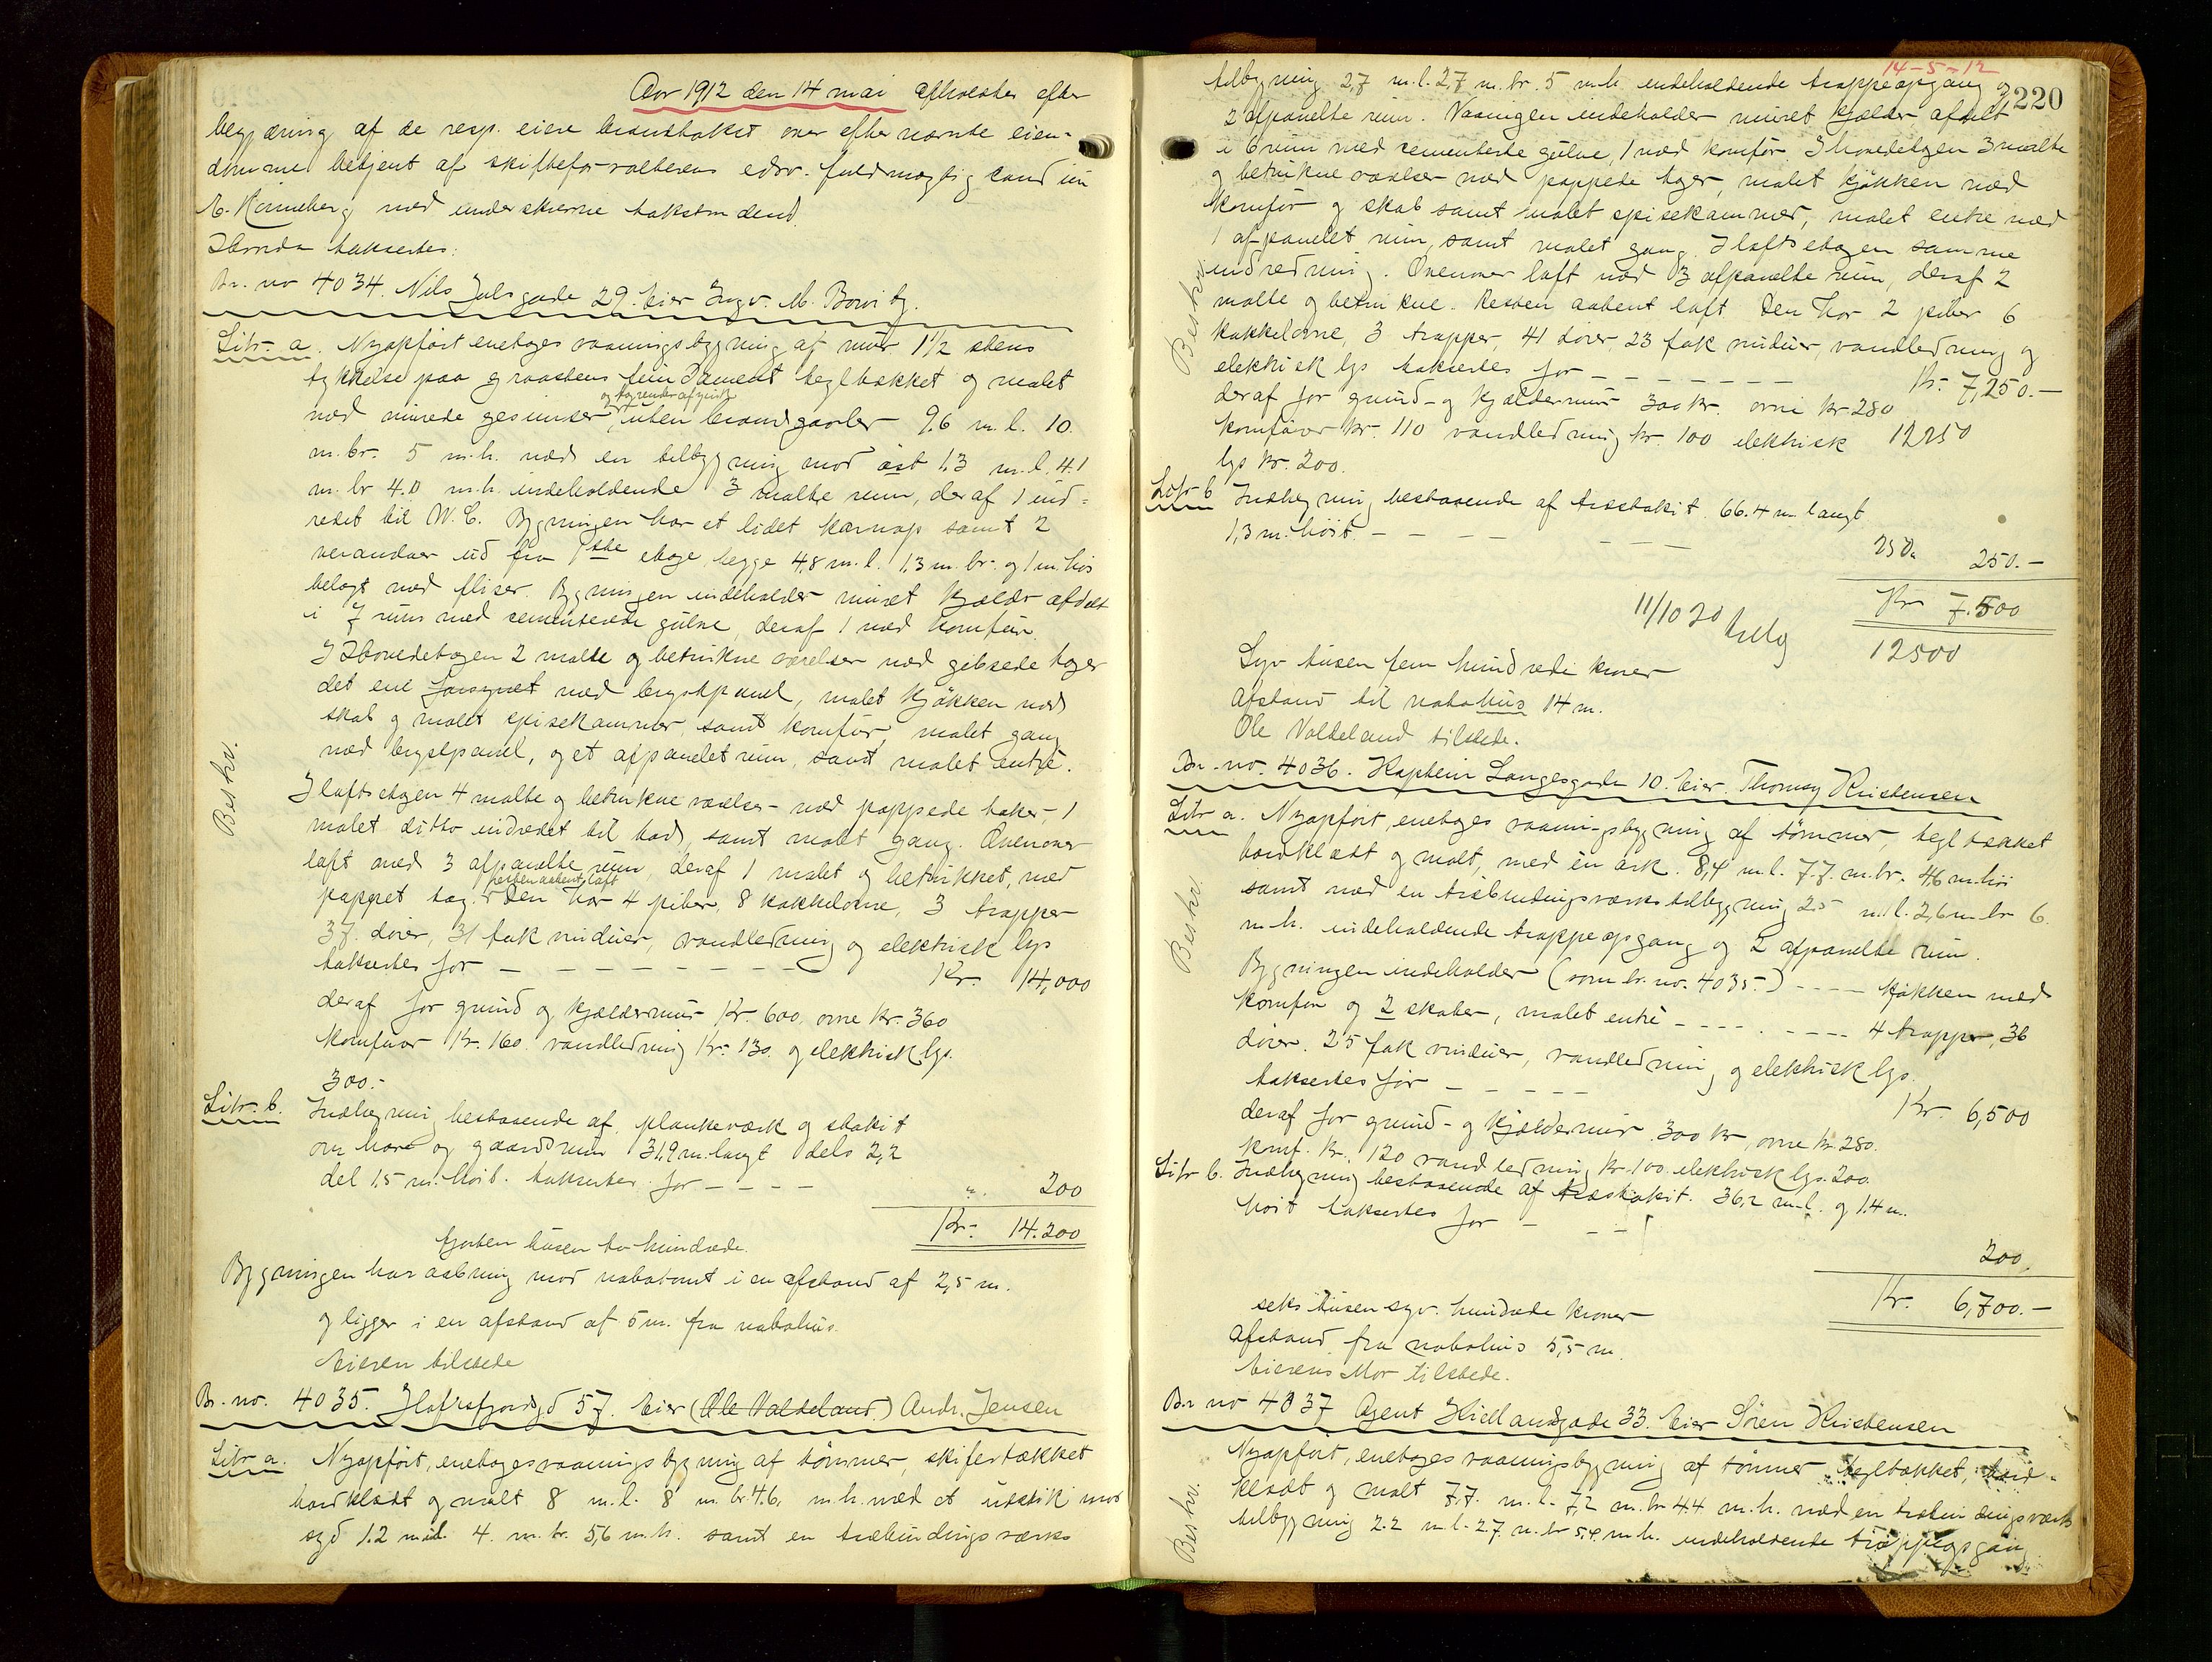 Aar 1912 den 14 mai afholdtes efter
begjæring af de resp. eiere brandtakst over efternævnte eien-
domme betjent af skifteforvalterens edsv. fuldmægtig cand jur
E. Kinneberg med underskrevne takstmænd.
Ihvorda taksertes:
Br. no 4034. Nils Juls gade 29. Eier Ingv. M. Bowitz.
Litr. a. Nyopført enetages vaaningsbygning af mur 1½ stens
tykkelse paa graastens fundament tegltækket og malet
og tagrender af zink
med murede gesimser, uten brandgavler 9.6 m. l. 10.
m. br. 5 m. h. med en tilbygning mod øst 1.3 m. l. 4.1
m. br 4.0 m. h. indeholdende 3 malte rum, deraf 1 ind-
redet til W. C. Bygningen har et lidet karnap samt 2
verandaer ud fra 1ste etage, begge 4,8 m. l. 1,3 m. br. og 1 m. høi
belagt med fliser. Bygningen indeholder muret kjælder afdelt
i 7 rum med cementerede gulve, deraf 1 med komfur.
I 1hovedetagen 2 malte og betrukne værelser med gibsede tager
det ene forsynet med brystpanel, malet kjøkken med
skab og malet spisekammer, samt komfur, malet gang
med brystpanel, og et afpanelet rum, samt malet entre.
I loftsetagen 4 malte og betrukne værelser med pappede taker, 1
malet ditto indredet til bad, samt malet gang. Ovenover
loft med 3 afpanelte rum, deraf 1 malet og betrukket, med
resten aabent loft
pappet tag. Den har 4 piber, 8 kakkelovne, 3 trapper
37. dører, 31 fak vinduer, vandledning og elektrisk lys
taksertes for — — — — — — — — Kr. 14,000
deraf for grund og kjældermur Kr. 600, ovne Kr. 360
komfurer Kr. 160. vandledning Kr. 130. og elektrisk lys.
300.-
Litr. b. Indhegning bestaaende af plankeværk og stakit
om have og gaardsrum 31,9 m. langt dels 2,2
del 1.5 m. høit. taksertes for — — — — ". 200
Kr. 14.200
fjorten tusen to hundrede.
Bygningen har aabning mod nabotomt i en afstand af 2,5 m.
og ligger i en afstand af 5 m. fra nabohus.
Eieren tilstede
Br. no. 4035. Hafrsfjordgd 57. Eier (Ole Valdeland.) Andr. Jensen
Litr a. Nyopført, enetages vaaningsbygning af tømmer, skifertækket
bordklædt og malt 8 m. l. 8 m. br. 4.6. m. h. med et utstik mod
syd 1.2 m. l. 4. m. br. 5,6 m. h. samt en træbindingsværks
Beskr.
14-5-12
220
tilbygning 2,7 m. l. 2,7 m. br. 5 m. h. indeholdende trappeopgang og
2 afpanelte rum. Vaaningen indeholder muret kjælder afdelt
i 6 rum med cementerte gulve, 1 med komfør. I hovedetagen 3 malte
og betrukne værelser med pappede tager, malet kjøkken med
komfør og skab samt malet spisekammer, malet entre med
1 afpanelet rum, samt malet gang. I loftsetagen samme
indredning. Ovenover loft med 3 afpanelte rum, deraf 2
malte og betrukne. Resten aabent loft. Den har 2 piber 6
kakkelovne, 3 trapper, 41 dører, 23 fak vinduer, vandledning og
elektrisk lys taksertes for — — — — — — Kr. 7,250.—
deraf for grund- og kjældermur 300 Kr. ovne Kr 280
komfurer Kr. 110 vandledning Kr. 100 elektrisk 12250
lys Kr. 200.
Litr b Indhegning bestaaende af træstakit 66.4 m langt
1,3 m. høit. — — — — — — — 250. 250.—
Kr 7.500
11/10 20
12500
Syv tusen fem hundrede kroner
Afstand til nabohus 14 m.
Ole Valdeland tilstede.
Br. no. 4036. Kaptein Langesgade 10. Eier. Thomas Kristensen
Litr a. Nyopført, enetages vaaningsbygning af tømmer, tegltækket
bordklædt og malt, med en ark. 8,4 m. l. 7.7. m. br. 4,6 m. høi
samt med en træbindingsværks tilbygning 2.5 m. l. 2,6 m. br 6.
m. h. indeholdende trappeopgang og 2 afpanelte rum.
Bygningen indeholder (som br. no. 4035-) - - - - kjøkken med
komfør og 2 skaber, malet entré - - - - . - - - - 4 trapper, 36
dører. 25 fak vinduer, vandledning og elektrisk lys.
taksertes for — — — — — Kr. 6,500
deraf for grund- og kjældermur 300 Kr, ovne Kr. 280.
komf. Kr. 120 vandledning Kr. 100. elektrisk lys. 200.
Litr b. Indhegning bestaaende af træstakit. 36,2 m. l. og 1.4 m.
høit taksertes for — — — 200.
Kr. 6,700.—
seks tusen syv hundrede kroner
Afstand fra nabohus 5,5 m.
Eierens Mor tilstede.
Br. no 4037 Agent Kiellandsgade 33. Eier Søren Kristensen
Nyopført, enetages vaaningsbygning af tømmer tegltækket, bord-
klædt og malt 7.7. m. l. 7,2 m. br 4.4 m. h. med en træbindingsværks
tilbygning 2.2 m. l. 2.7. m. br 5,4 m. h. indeholdende trappeopgang
Beskr.
Beskr.
Beskr.